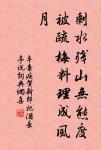 剩水残山无态度
被疏梅料理成风
月
辛弃疾贺新郎把酒长
亭说词典网嘉